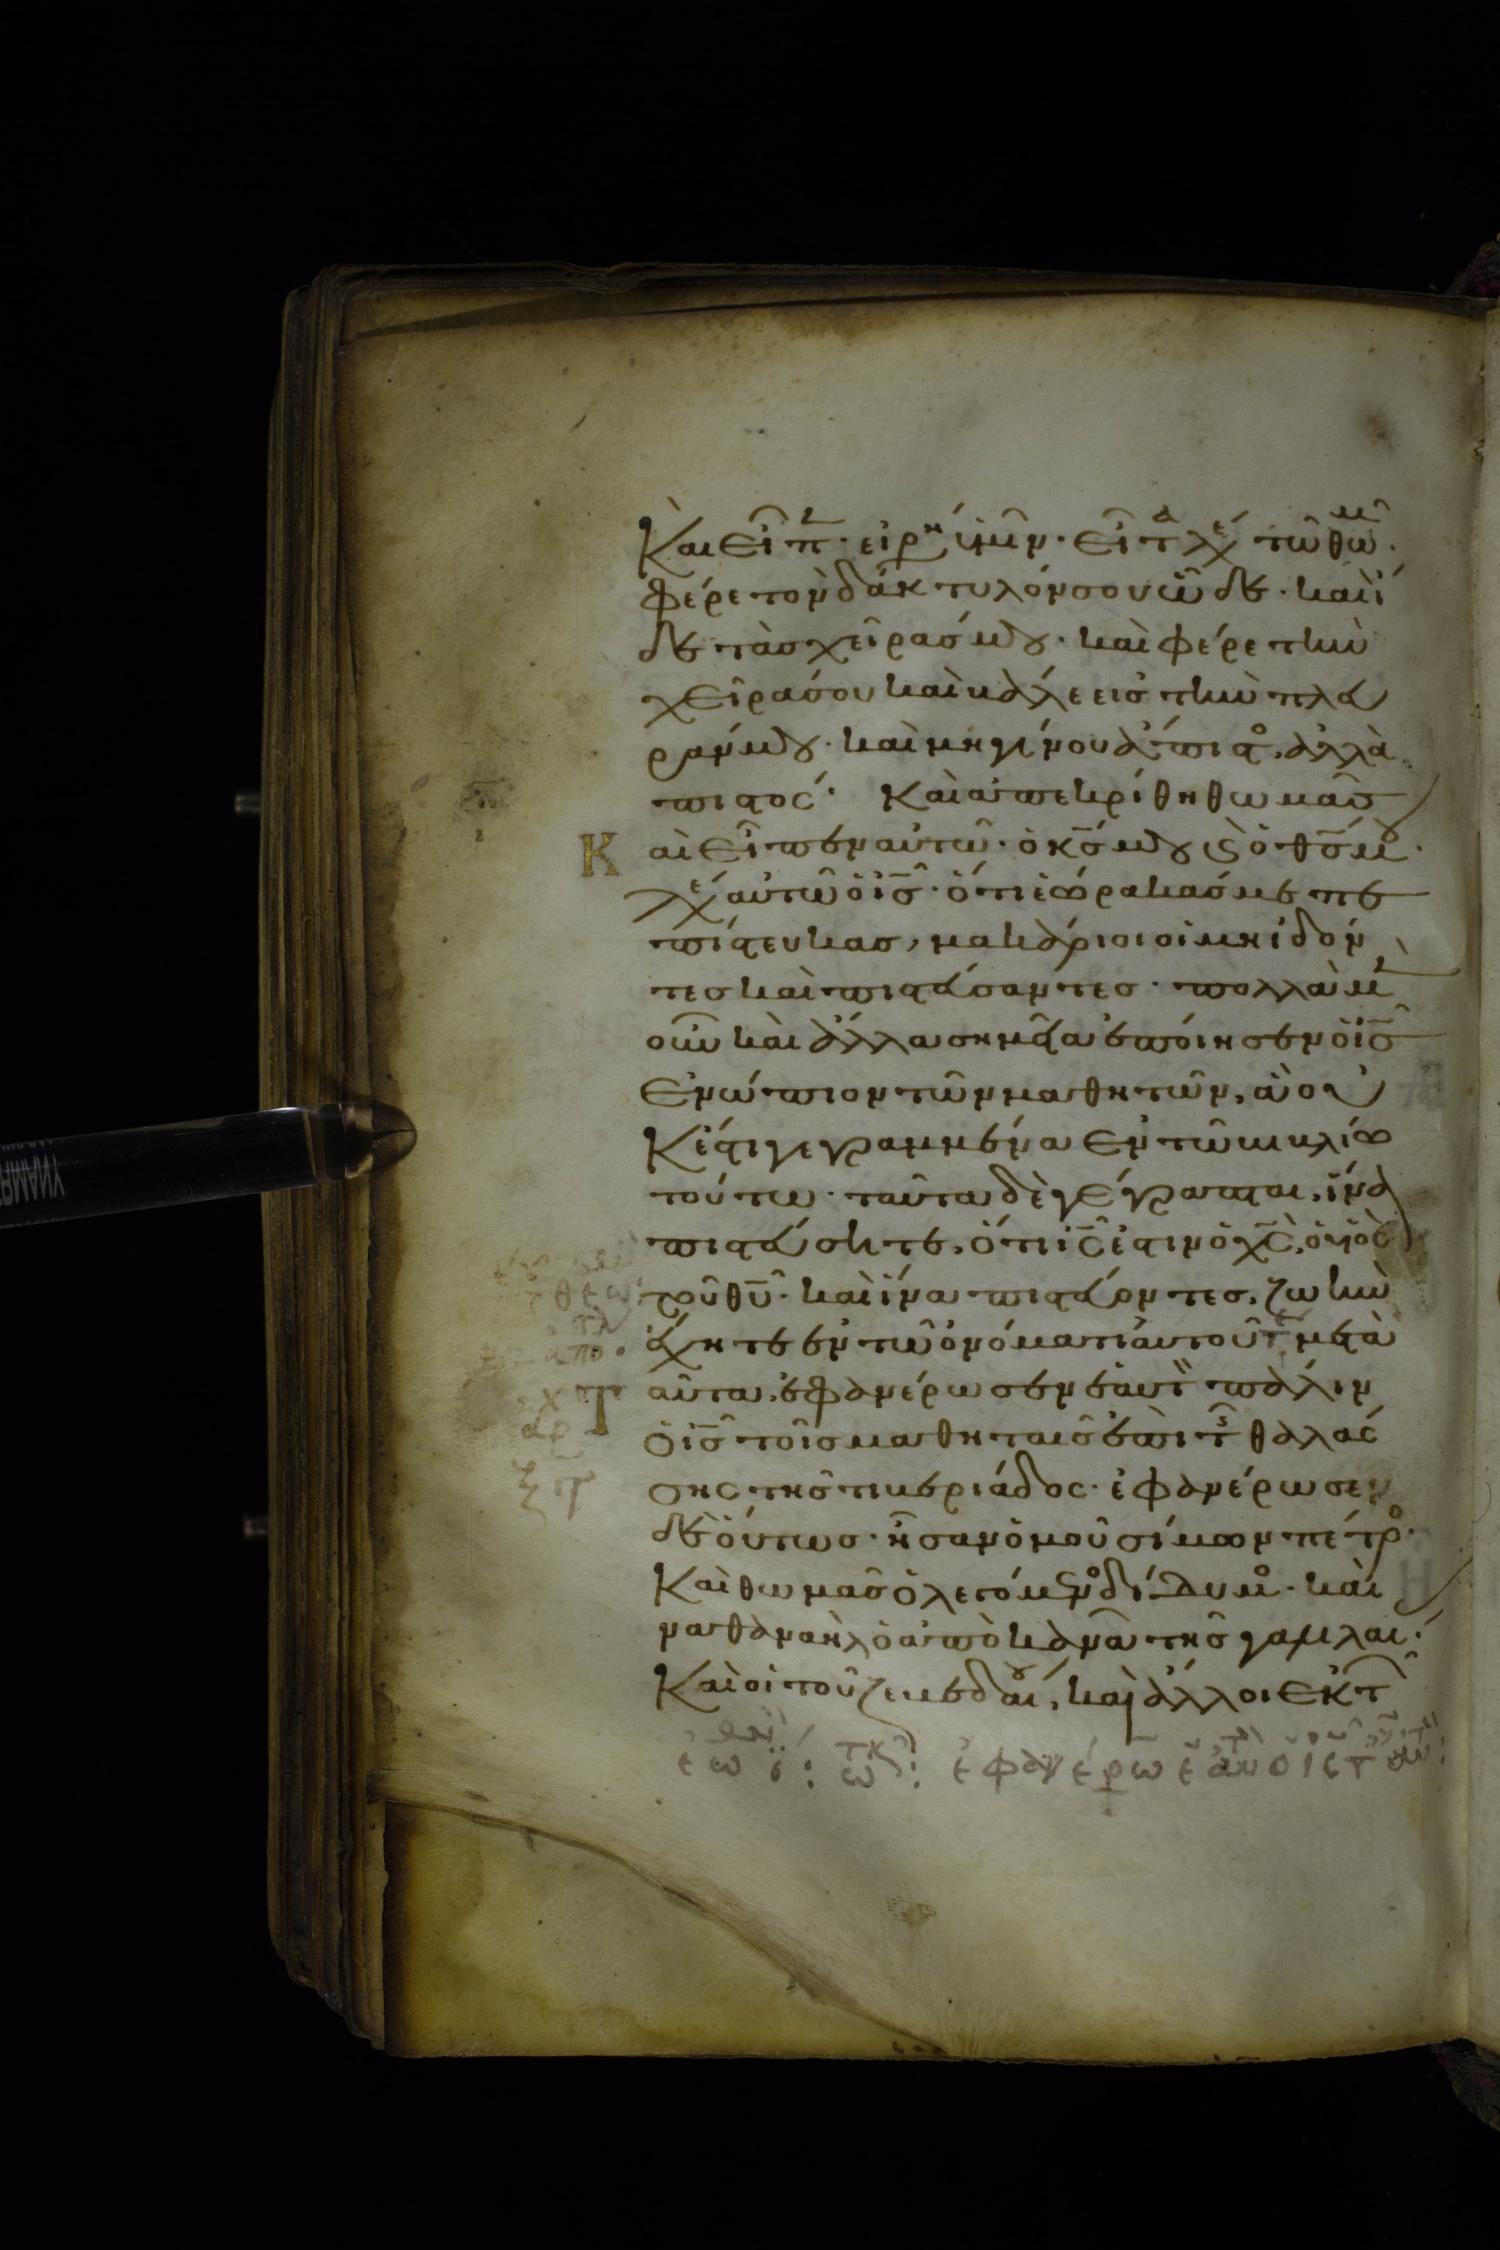 Και εἶπ · εἰρη ὑμῖν · εἶτα λέγ τῶ θωμ ·
φέρε τὸν δάκτυλόν σου ὧδε · καὶ ἴ
δε τὰσ χεῖρασ μου · καὶ φέρε τὴν
χεῖρα σου καὶ βάλε εισ τὴν πλευ
ράν μου · καὶ μη γίνου ἄπιστο, ἀλλὰ
πιστοσ · Καὶ ἀπεκρίθη θωμᾶσ
Κ αὶ εἶπεν αὐτῶ · ὁ κσ μου ϗ ὁ θσ μου ·
λέγ αὐτῶ ὁ ισ · ὅτι ἑώρακασ με πε
πίστευκασ, μακάριοι οἱ μη ἰδόν
τεσ καὶ πιστεύσαντεσ · πολλὰ μ
οὖν καὶ ἄλλα σημεῖα ἐποίησεν ὁ ισ
Ενώπιον τῶν μαθητῶν, ἃ οὐ
Κ ἔστι γεγραμμένα Εν τῶ βιβλίω
τούτω · ταῦτα δὲ γέγραπται, ἵνα
πιστεύσητε, ὅτι ισ ἐστιν ὁ χσ, ὁ υἱὸσ
τοῦ θυ · καὶ ἵνα πιστεύοντεσ, ζωὴν
ἔχητε ἐν τῶ ὀνόματι αυτοῦ μετὰ
Τ αῦτα, ἐφανέρωσεν ἑαυτ πάλιν
ὁ ισ τοῖσ μαθηταισ ἐπὶ τ θαλάσ
σησ τησ τιβεριάδοσ · ἐφανέρωσεν
δὲ ὁύτωσ · ῆσαν ὁμοῦ σίμων πέτρο ·
Καὶ θωμᾶσ ὁ λεγόμενο δίδυμο · καὶ
ναθαναὴλ ὁ ἀπὸ κανᾶ τησ γαλιλαι ·
Καὶ οἱ τοῦ ζεβεδαίου, καὶ ἄλλοι Εκ τ